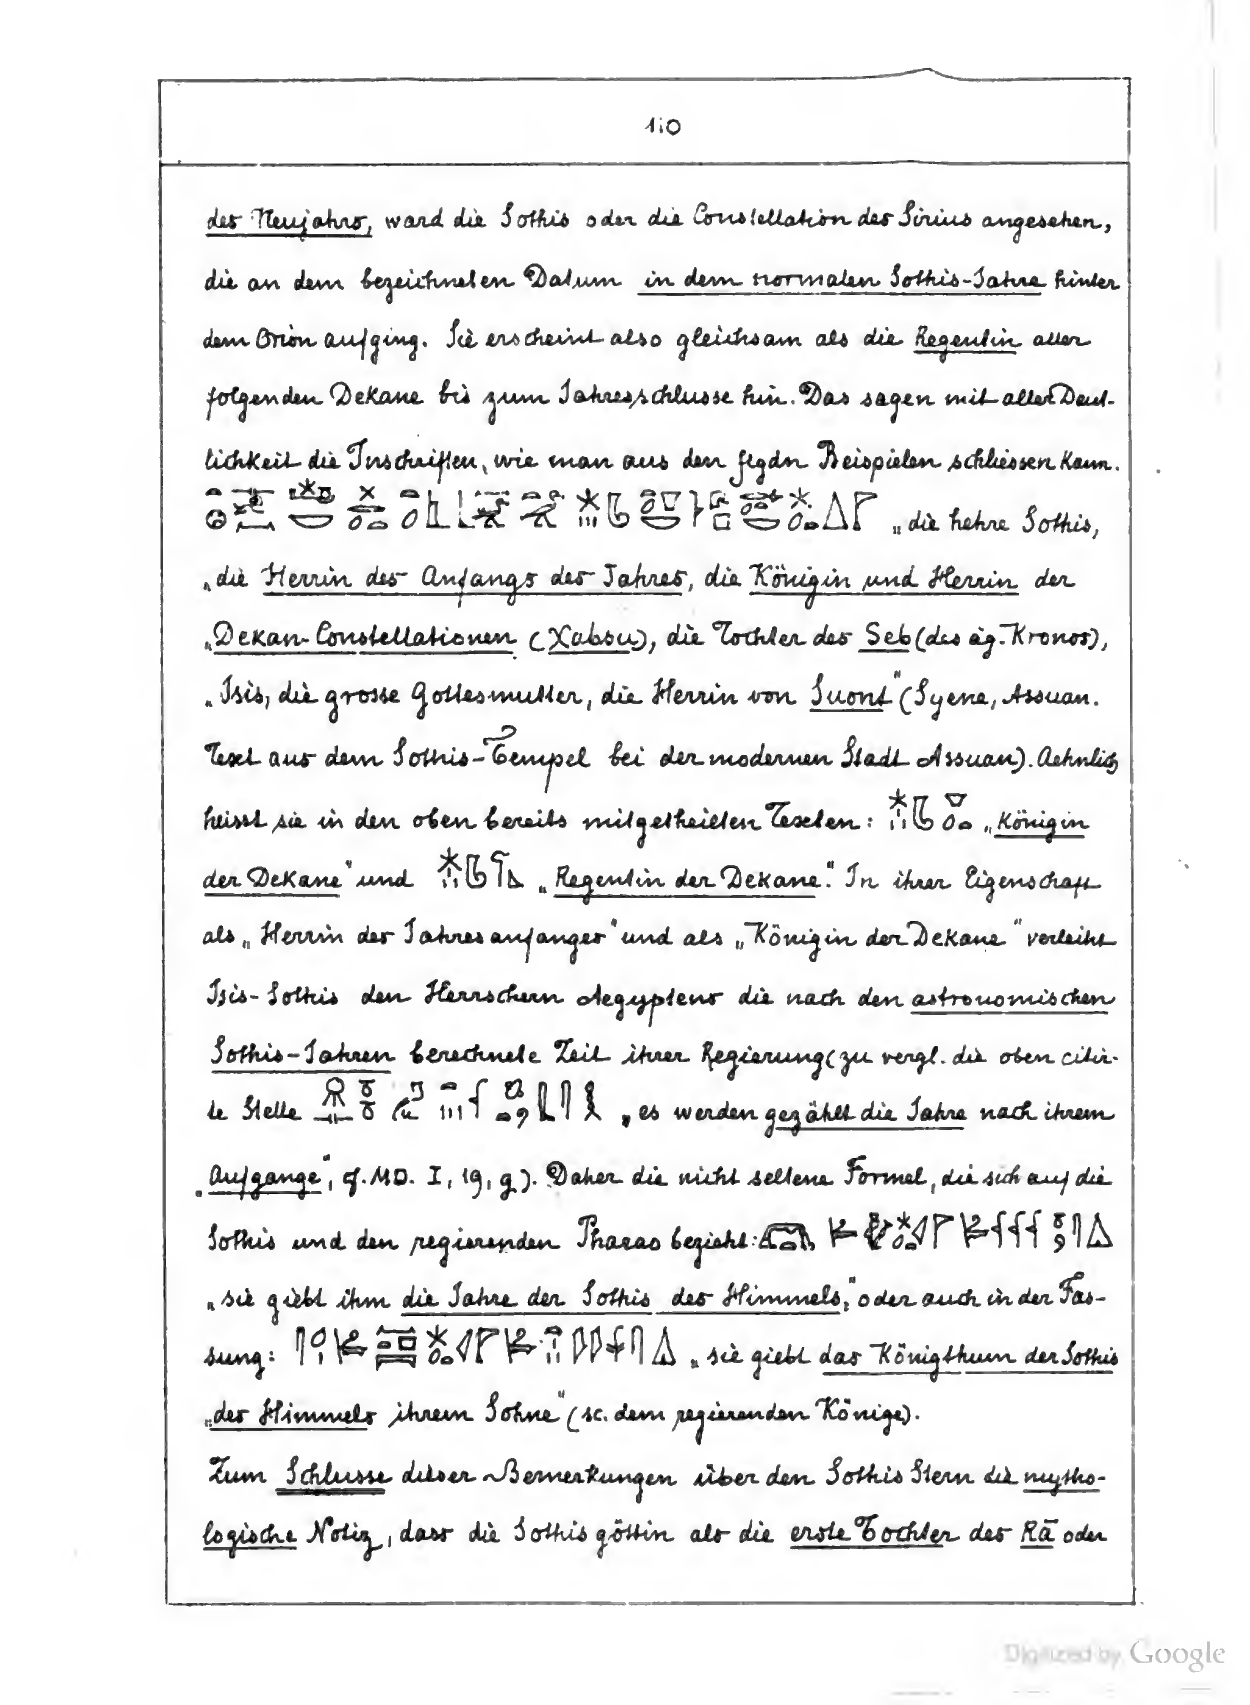 110
des Neujahrs, ward die Sothis oder die Constellation des Sirius angesehen,
die an dem bezeichneten Datum in dem normalen Sothis-Jahre hinter
dem Orion aufging. Sie erscheint also gleichsam als die Regentin aller
folgenden Dekane bis zum Jahresschlusse hin. Das sagen mit aller Deut-
lichkeit die Inschriften, wie man aus den flgdn Beispielen schliessen kann.
„die hehre Sothis,
„die Herrin des Anfangs des Jahres, die Königin und Herrin der
„Dekan-Constellationen (Xabsu), die Tochter des Seb (des äg. Kronos),
„Isis, die grosse Gottesmutter, die Herrin von Suont“ (Syene, Assuan.
Text aus dem Sothis-Tempel bei der modernen Stadt Assuan). Aehnlich
heisst sie in den oben bereits mitgetheilten Texten: „Königin
der Dekane“ und „Regentin der Dekane“. In ihrer Eigenschaft
als „Herrin des Jahresanfanges“ und als „Königin der Dekane“ verleiht
Isis-Sothis den Herrschern Aegyptens die nach den astronomischen
Sothis-Jahren berechnete Zeit ihrer Regierung (zu vergl. die oben citir-
te Stelle „es werden gezählt die Jahre nach ihrem
„Aufgange“, cf. MD. I, 19, g). Daher die nicht seltene Formel, die sich auf die
Sothis und den regierenden Pharao bezieht:
„sie giebt ihm die Jahre der Sothis des Himmels“, oder auch in der Fas-
sung: „sie giebt das Königthum der Sothis
„des Himmels ihrem Sohne“ (sc. dem regierenden Könige).
Zum Schlusse dieser Bemerkungen über den Sothis Stern die mytho-
logische Notiz, dass die Sothisgöttin als die erste Tochter des Rā oder
Digitized by Google